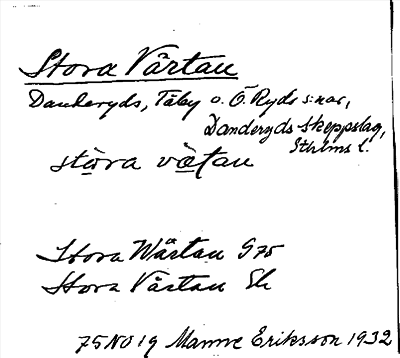 Stora Värtan
Danderyds, Täby o. Ö. Ryds s:nar,
Danderyds skeppslag,
Sthlms l.
stora vætan
Stora Wärtan G75
Stora Värtan Ek
75 NO 19 Manne Eriksson 1932